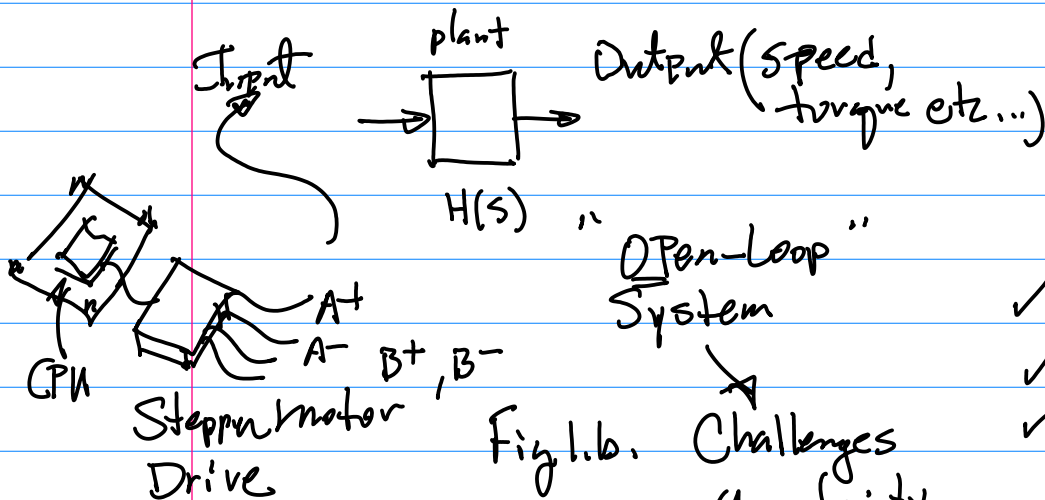 plant
Input
Output (speed,
torque etc...)
H(s)
"Open-Loop"
System
A+
A-
B+, B-
CPU
Stepper Motor
Drive
Fig 1.b.
Challenges